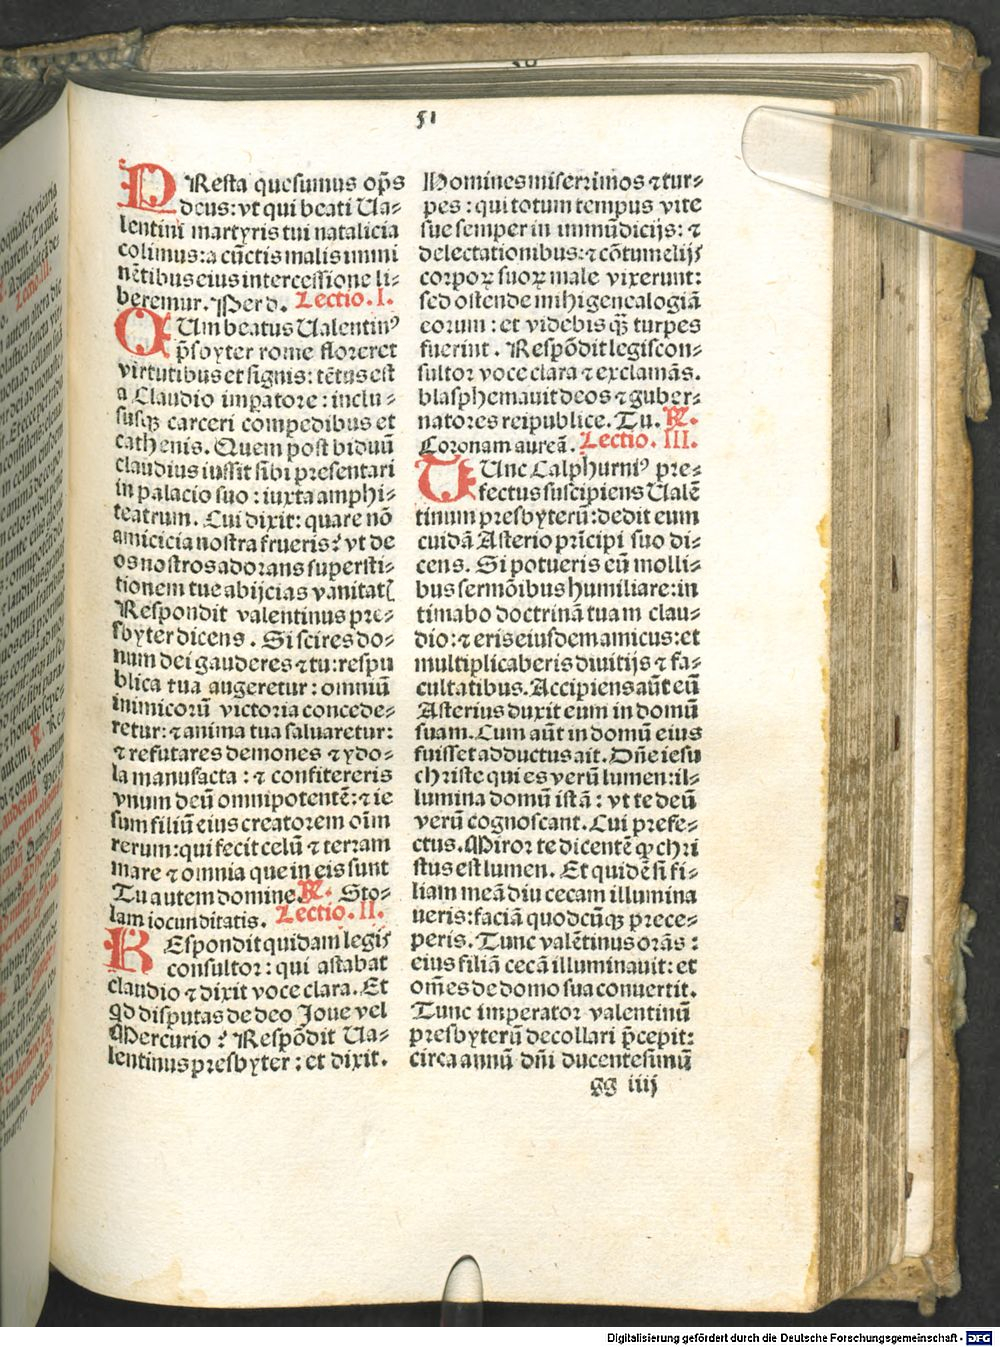 51
PResta quesumus op̄s
deus: vt qui beati Ua⸗
lentini martyris tui natalicia
colimus: a cūctis malis immi
nētibus eius intercessione li⸗
beremur. Per d. Lectio. I.
CUm beatus Ualentinꝰ
p̄sbyter rome floreret
virtutibus et signis: tētus est
a Claudio impatore: inclu⸗
susqꝫ carceri compedibus et
cathenis. Quem post biduū
claudius iussit sibi presentari
in palacio suo: iuxta amphi⸗
teatrum. Cui dixit: quare nō
amicicia nostra frueris? vt de
os nostros adorans supersti⸗
tionem tue abijcias vanitatꝭ
Respondit valentinus pre⸗
sbyter dicens. Si scires do⸗
num dei gauderes ⁊ tu: respu
blica tua augeretur: omniū
inimicorū victoria concede⸗
retur: ⁊ anima tua saluaretur:
⁊ refutares demones ⁊ ydo⸗
la manufacta: ⁊ confitereris
vnum deū omnipotentē: ⁊ ie
sum filiū eius creatorem oīm
rerum: qui fecit celū ⁊ terram
mare ⁊ omnia que in eis sunt
Tu autem domine. ℟. Sto⸗
lam iocunditatis. Lectio. II.
REspondit quidam legis
consultor: qui astabat
claudio ⁊ dixit voce clara. Et
qd disputas de deo Joue vel
Mercurio? Respōdit Ua⸗
lentinus presbyter: et dixit.
Homines miserrimos ⁊ tur⸗
pes: qui totum tempus vite
sue semper in immūdicijs: ⁊
delectationibus: ⁊ cōtumelijs
corpoꝝ suoꝝ male vixerunt:
sed ostende mihi genealogiā
eorum: et videbis qꝫ turpes
fuerint. Respōdit legiscon⸗
sultor voce clara ⁊ exclamās.
blasphemauit deos ⁊ guber⸗
natores reipublice. Tu. ℟.
Coronam aureā. Lectio. III.
TUnc Calphurniꝰ pre⸗
fectus suscipiens Ualē
tinum presbyterū: dedit eum
cuidā Asterio prīcipi suo di⸗
cens. Si potueris eū molli⸗
bus sermōibus humiliare: in
timabo doctrinā tuam clau⸗
dio: ⁊ eris eiusdem amicus: et
multiplicaberis diuitijs ⁊ fa⸗
cultatibus. Accipiens aūt eū
Asterius duxit eum in domū
suam. Cum aūt in domū eius
fuisset adductus ait. Dn̄e iesu
christe qui es verū lumen: il⸗
lumina domū istā: vt te deū
verū cognoscant. Cui prefe⸗
ctus. Miror te dicentē ꝙ chri
stus est lumen. Et quidē si fi⸗
liam meā diu cecam illumina
ueris: faciā quodcūqꝫ prece⸗
peris. Tunc valētinus orās:
eius filiā cecā illuminauit: et
om̄es de domo sua conuertit.
Tunc imperator valentinū
presbyterū decollari p̄cepit:
circa annū dn̄i ducentesimū
gg iiij
Digitalisierung gefördert durch die Deutsche Forschungsgemeinschaft - DFG